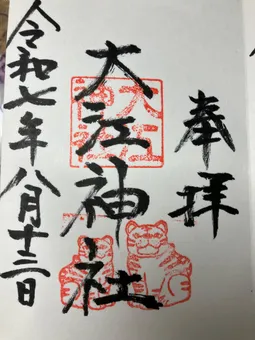 奉拝
大江神社
令和七年八月十三日
大江
神社